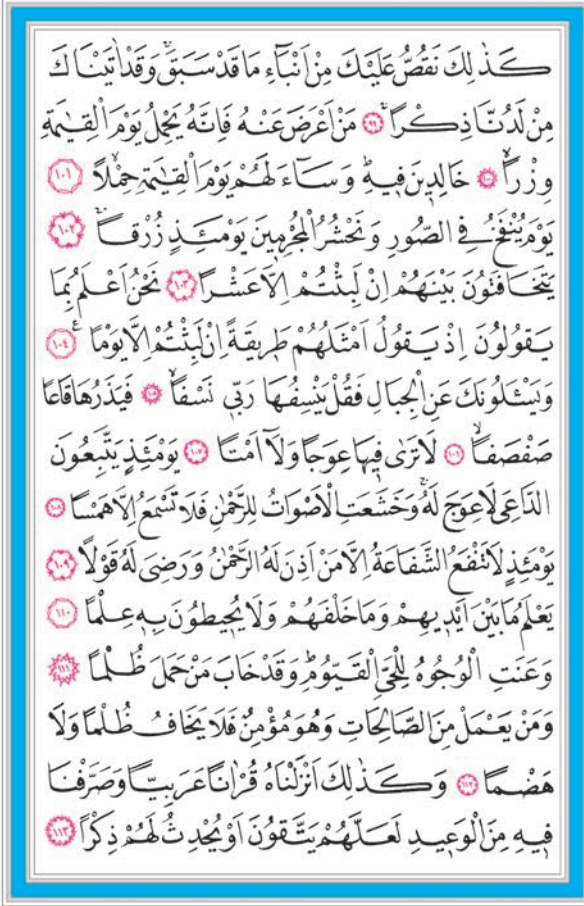 كَذٰلِكَ نَقُصُّ عَلَيْكَ مِنْ اَنْبَٓاءِ مَا قَدْ سَبَقَۚ وَقَدْ اٰتَيْنَاكَ
مِنْ لَدُنَّا ذِكْراًۚ ﴿٩٩﴾ مَنْ اَعْرَضَ عَنْهُ فَاِنَّهُ يَحْمِلُ يَوْمَ الْقِيٰمَةِ
وِزْراًۙ ﴿١٠٠﴾ خَالِدٖينَ فٖيهِۜ وَسَٓاءَ لَهُمْ يَوْمَ الْقِيٰمَةِ حِمْلاًۙ ﴿١٠١﴾
يَوْمَ يُنْفَخُ فِي الصُّورِ وَنَحْشُرُ الْمُجْرِمٖينَ يَوْمَئِذٍ زُرْقاًۚ ﴿١٠٢﴾
يَتَخَافَتُونَ بَيْنَهُمْ اِنْ لَبِثْتُمْ اِلَّا عَشْراً ﴿١٠٣﴾ نَحْنُ اَعْلَمُ بِمَا
يَقُولُونَ اِذْ يَقُولُ اَمْثَلُهُمْ طَرٖيقَةً اِنْ لَبِثْتُمْ اِلَّا يَوْماًࣖ ﴿١٠٤﴾
وَيَسْـَٔلُونَكَ عَنِ الْجِبَالِ فَقُلْ يَنْسِفُهَا رَبّٖي نَسْفاًۙ ﴿١٠٥﴾ فَيَذَرُهَا قَاعاً
صَفْصَفاًۙ ﴿١٠٦﴾ لَا تَرٰى فٖيهَا عِوَجاً وَلَٓا اَمْتاً ﴿١٠٧﴾ يَوْمَئِذٍ يَتَّبِعُونَ
الدَّاعِيَ لَا عِوَجَ لَهُۚ وَخَشَعَتِ الْاَصْوَاتُ لِلرَّحْمٰنِ فَلَا تَسْمَعُ اِلَّا هَمْساً ﴿١٠٨﴾
يَوْمَئِذٍ لَا تَنْفَعُ الشَّفَاعَةُ اِلَّا مَنْ اَذِنَ لَهُ الرَّحْمٰنُ وَرَضِيَ لَهُ قَوْلاً ﴿١٠٩﴾
يَعْلَمُ مَا بَيْنَ اَيْدٖيهِمْ وَمَا خَلْفَهُمْ وَلَا يُحٖيطُونَ بِهٖ عِلْماً ﴿١١٠﴾
وَعَنَتِ الْوُجُوهُ لِلْحَيِّ الْقَيُّومِۜ وَقَدْ خَابَ مَنْ حَمَلَ ظُلْماً ﴿١١١﴾
وَمَنْ يَعْمَلْ مِنَ الصَّالِحَاتِ وَهُوَ مُؤْمِنٌ فَلَا يَخَافُ ظُلْماً وَلَا
هَضْماً ﴿١١٢﴾ وَكَذٰلِكَ اَنْزَلْنَاهُ قُرْاٰناً عَرَبِياًّ وَصَرَّفْنَا
فٖيهِ مِنَ الْوَعٖيدِ لَعَلَّهُمْ يَتَّقُونَ اَوْ يُحْدِثُ لَهُمْ ذِكْراً ﴿١١٣﴾